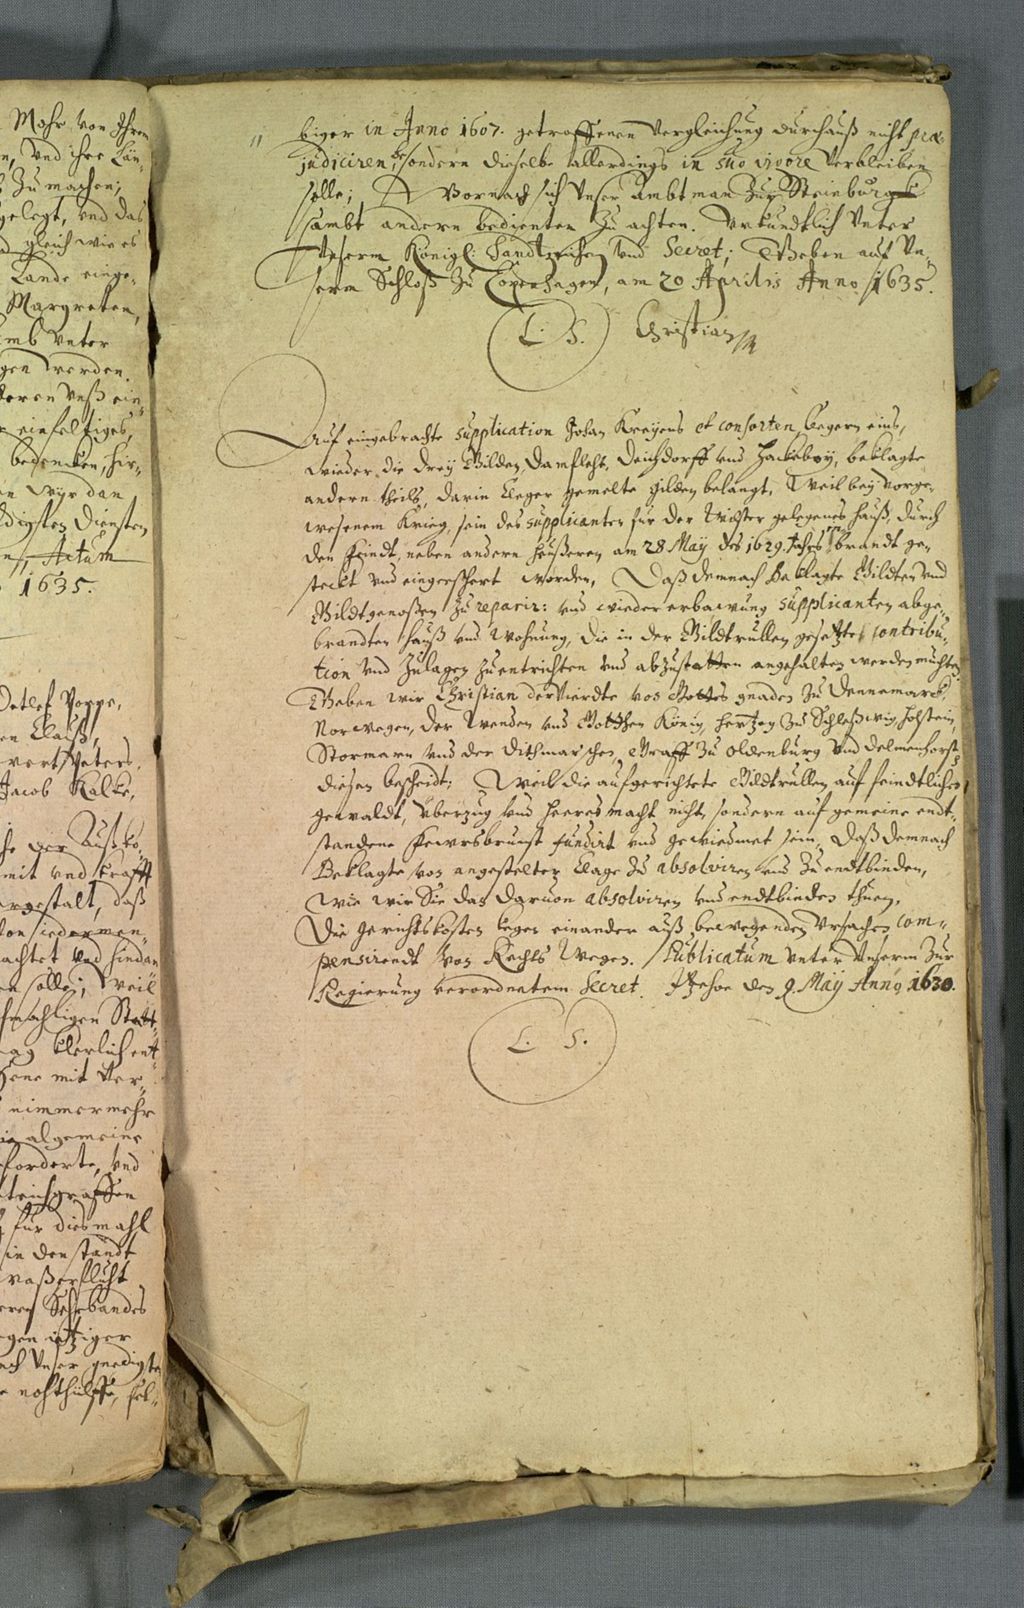 Mohr von Ihrem
n, vnd ihre Län-
zu machen;
gelegt, vnd das
gleich wie es
Lande einge-
Margreten,
vnter
gen werden.
deren vnß ein-
einfeltiges,
bedencken, hir-
n wyr dan
digsten diensten
n, Actum
1635.
Detlef Poppe,
en Clauß,
Peters,
Jacob Kalke,
mit vnd krafft
ergestalt, daß
von iederman-
achtet vnd hindan
n solle; Weil
mahligen Statt-
ag klerlich ent-
hene mit ver-
nimmermehr
algemeine
forderte, vnd
für diesmahl
in den standt
waßerfluht
gen itziger
ach vnser gnedigste
nohthülffe,
" biger in Anno 1607. getroffenen vergleichung durchauß nicht præ-
judiciren, besondern dieselbe allerdings in suo vigore verbleiben
solle; Wornach sich vnser Ambtman zur Steinburgk
sambt andern bedienten zu achten. Vrkundtlich vnter
vnserm Königl: Handtzeichen vnd Secret; Geben auf vn-
serm Schloß zu Copenhagen, am 20 Aprilis Anno 1635.
L. S. Christian
Auf eingebrachte supplication Johan Kreÿens et consorten, klegern eins,
wieder die dreÿ Gilden, Damfleht, Deichdorff vnd Hackeboÿ, beklagte
andern theils, darin kleger gemelte Gilden belangt, Weil beÿ vorge-
wesenem Krieg, sein des supplicanten für der Wilster gelegenes hauß, durch
den Feindt, neben andern heußeren, am 28 Maÿ des 1629. Jahrs in brandt ge-
steckt vnd eingeeschert worden, Daß demnach Beklagte Gilden vnd
Gildtgenoßen zu reparir: vnd wieder erbawung supplicanten abge-
brandten hauß vnd wohnung, die in der Gildtrullen gesetzte contribu-
tion vnd Zulagen zu entrichten vnd abzustatten angehalten werden muchten.
Geben wir Christian der Vierdte von Gottes gnaden zu Dennemarck,
Norwegen, der Wenden vnd Gotthen König, hertzog zu Schleßwig, Holstein,
Stormarn vnd der Dithmarschen, Graff zu Oldenburg vnd Delmenhorst,
diesen bescheidt; Weil die aufgerichtete Gildtrullen auf feindtlichen
gewaldt, vberzug vnd heeres macht nicht, sondern auf gemeine endt-
standene Fewrsbrunst fundirt vnd gewiedmet sein, Daß demnach
Beklagte von angestelter klage zu absolviren vnd zu endtbinden,
wie wir Sie dan daruon absolviren vnd endtbinden thuen,
Die gerichtskosten gegen einander auß bewegenden vrsachen com-
pensirendt von Rechts wegen. Publicatum vnter vnserm zur
Regierung verordnetem Secret. Itzehoe den 9. Maÿ Anno 1630.
L. S.